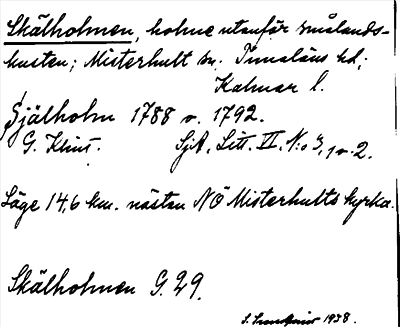 Skälholmen, holme utanför smålands-
kusten; Misterhult sn. Tunaläns hd;
Kalmar l.
Själholm 1788 o. 1792.
G. Klint. SjA. Litt. VI. N:o 3, 1 o 2.
Läge 14,6 km. nästan NÖ Misterhults kyrka.
Skälholmen G. 29.
1938.